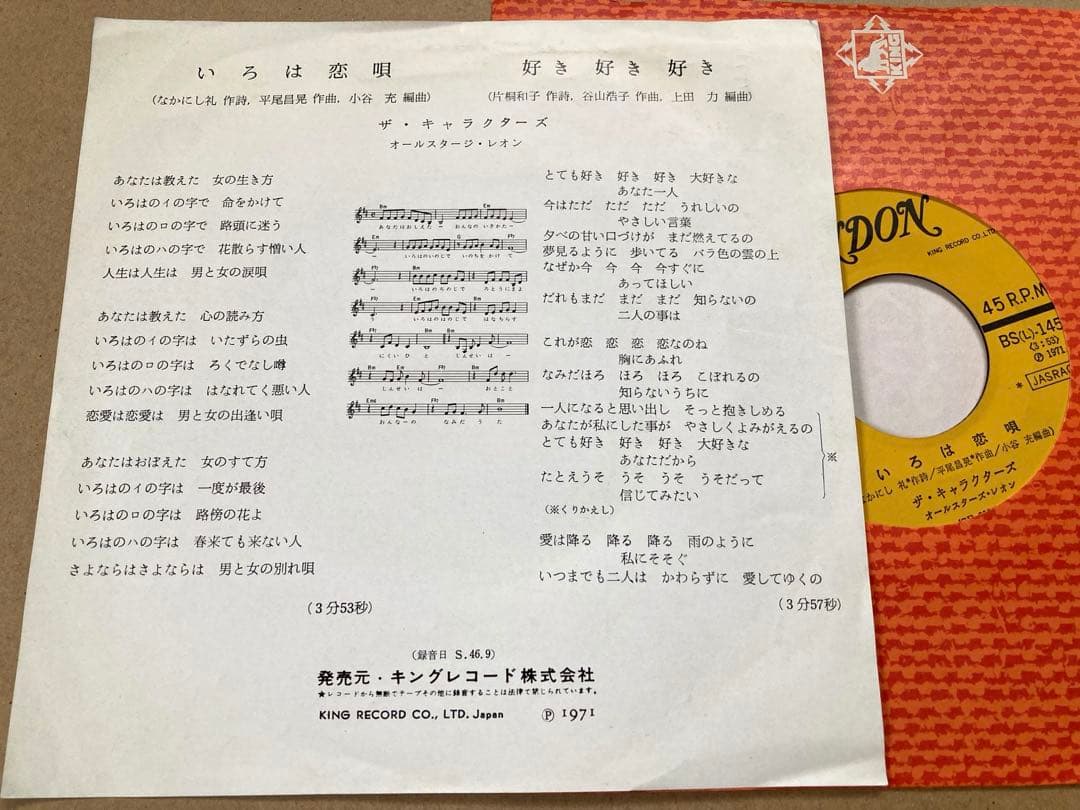 いろは恋唄
(なかにし礼 作詩, 平尾昌晃 作曲, 小谷 充 編曲)
好き 好き 好き
(片桐和子 作詩, 谷山浩子 作曲, 上田 力 編曲)
ザ・キャラクターズ
オールスタージ・レオン
あなたは教えた 女の生き方
いろはのイの字で 命をかけて
いろはのロの字で 路頭に迷う
いろはのハの字で 花散らす憎い人
人生は人生は 男と女の涙唄
あなたは教えた 心の読み方
いろはのイの字は いたずらの虫
いろはのロの字は ろくでなし噂
いろはのハの字は はなれてく悪い人
恋愛は恋愛は 男と女の出逢い唄
あなたはおぼえた 女のすて方
いろはのイの字は 一度が最後
いろはのロの字は 路傍の花よ
いろはのハの字は 春来ても来ない人
さよならはさよならは 男と女の別れ唄
(3分53秒)
あなたはおしえた ー おんなのいきかたー
ー いろはのいのじで いのちをかけて
ー いろはのろのじで ろとうにまよ
う いろはのはのじで はなちらす
にくいひと じんせいはー
じんせいはー おとこと
おんなーの なみだうた
とても好き 好き 好き 大好きな
あなた一人
今はただ ただ ただ うれしいの
やさしい言葉
夕べの甘い口づけが まだ燃えてるの
夢見るように 歩いてる バラ色の雲の上
なぜか今 今 今 今すぐに
あってほしい
だれもまだ まだ まだ 知らないの
二人の事は
これが恋 恋 恋 恋なのね
胸にあふれ
なみだほろ ほろ ほろ こぼれるの
知らないうちに
一人になると思い出し そっと抱きしめる
あなたが私にした事が やさしくよみがえるの
とても好き 好き 好き 大好きな
あなただから
たとえうそ うそ うそ うそだって
信じてみたい
※
(※くりかえし)
愛は降る 降る 降る 雨のように
私にそそぐ
いつまでも二人は かわらずに 愛してゆくの
(3分57秒)
(録音日 S.46.9)
発売元・キングレコード株式会社
★レコードから無断でテープその他に録音することは法律で禁じられています。
KING RECORD CO., LTD. Japan Ⓟ 1971
KING
DON
KING RECORD CO., LTD.
45 R.P.M
BS(L)-145
(3:53)
Ⓟ 1971
* JASRAC
いろは恋唄
なかにし 礼*作詩/平尾昌晃*作曲/小谷 充編曲)
ザ・キャラクターズ
オールスターズ・レオン